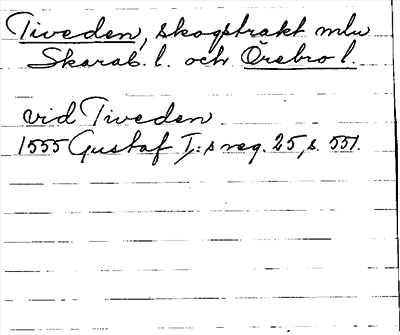 Tiveden, skogstrakt mln
Skarab. l. och Örebro l.
vid Tiveden
1555 Gustaf I:s reg. 25, s. 551.